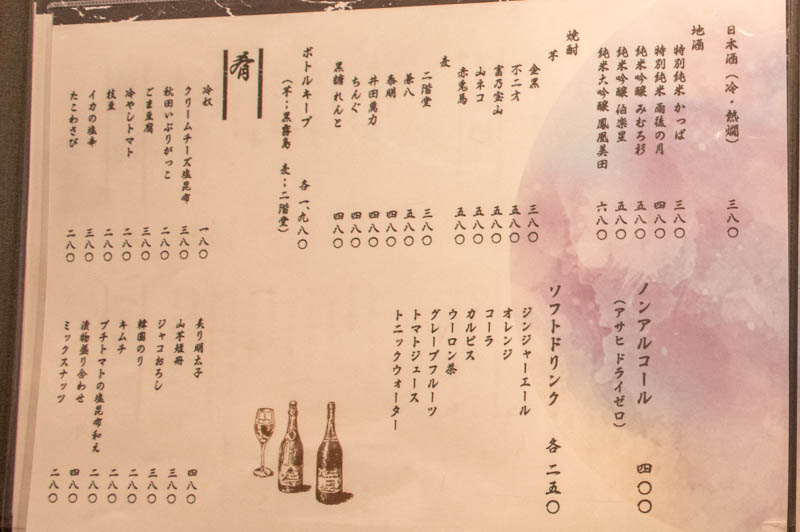 日本酒（冷・熱燗） 三八〇
地酒
特別純米 かっぱ 三八〇
特別純米 雨後の月 四八〇
純米吟醸 みむろ杉 五八〇
純米吟醸 伯楽星 五八〇
純米大吟醸 鳳凰美田 六八〇
焼酎
芋
金黒 三八〇
不二才 五八〇
富乃宝山 五八〇
山ネコ 五八〇
赤兎馬 五八〇
麦
二階堂 三八〇
兼八 五八〇
泰明 四八〇
井田萬力 四八〇
ちんぐ 四八〇
黒糖 れんと 四八〇
ボトルキープ 各 一、九八〇
（芋：黒霧島 麦：二階堂）
ノンアルコール 四〇〇
（アサヒ ドライゼロ）
ソフトドリンク 各 二五〇
ジンジャーエール
オレンジ
コーラ
カルピス
ウーロン茶
グレープフルーツ
トマトジュース
トニックウォーター
肴
冷奴 一八〇
クリームチーズ塩昆布 三八〇
秋田いぶりがっこ 二八〇
ごま豆腐 三八〇
冷やしトマト 二八〇
枝豆 二八〇
イカの塩辛 三八〇
たこわさび 二八〇
炙り明太子 四八〇
山芋短冊 三八〇
ジャコおろし 三八〇
韓国のり 二八〇
キムチ 二八〇
プチトマトの塩昆布和え 二八〇
漬物盛り合わせ 四八〇
ミックスナッツ 二八〇